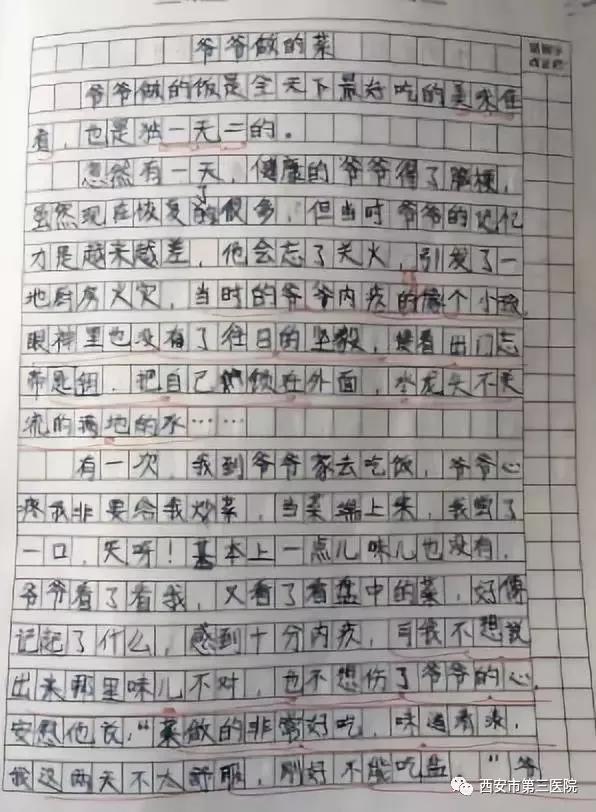 爷爷做的菜
爷爷做的饭是全天下最好吃的美味佳
肴，也是独一天二的。
忽然有一天，健康的爷爷得了脑梗，
虽然现在恢复的了很多，但当时爷爷的记忆
力是越来越差，他会忘了关火，引发了一
地厨房火灾，当时的爷爷内疚的像个小孩，
眼神里也没有了往日的坚毅，接着出门忘
带钥，把自己锁在外面，水龙头不关
流的满地的水……
有一次，我到爷爷家去吃饭，爷爷心
疼我非要给我炒菜，当菜端上来，我尝了
一口，天呀！基本上一点儿味儿也没有，
爷爷看了看我，又看了看盘中的菜，好像
记起了什么，感到十分内疚，可我不想说
出来那里味儿不对，也不想伤了爷爷的心，
安慰他说：“菜做的非常好吃，味道看淡，
我这两天不太舒服，刚好不能吃盐，”爷
西安市第三医院